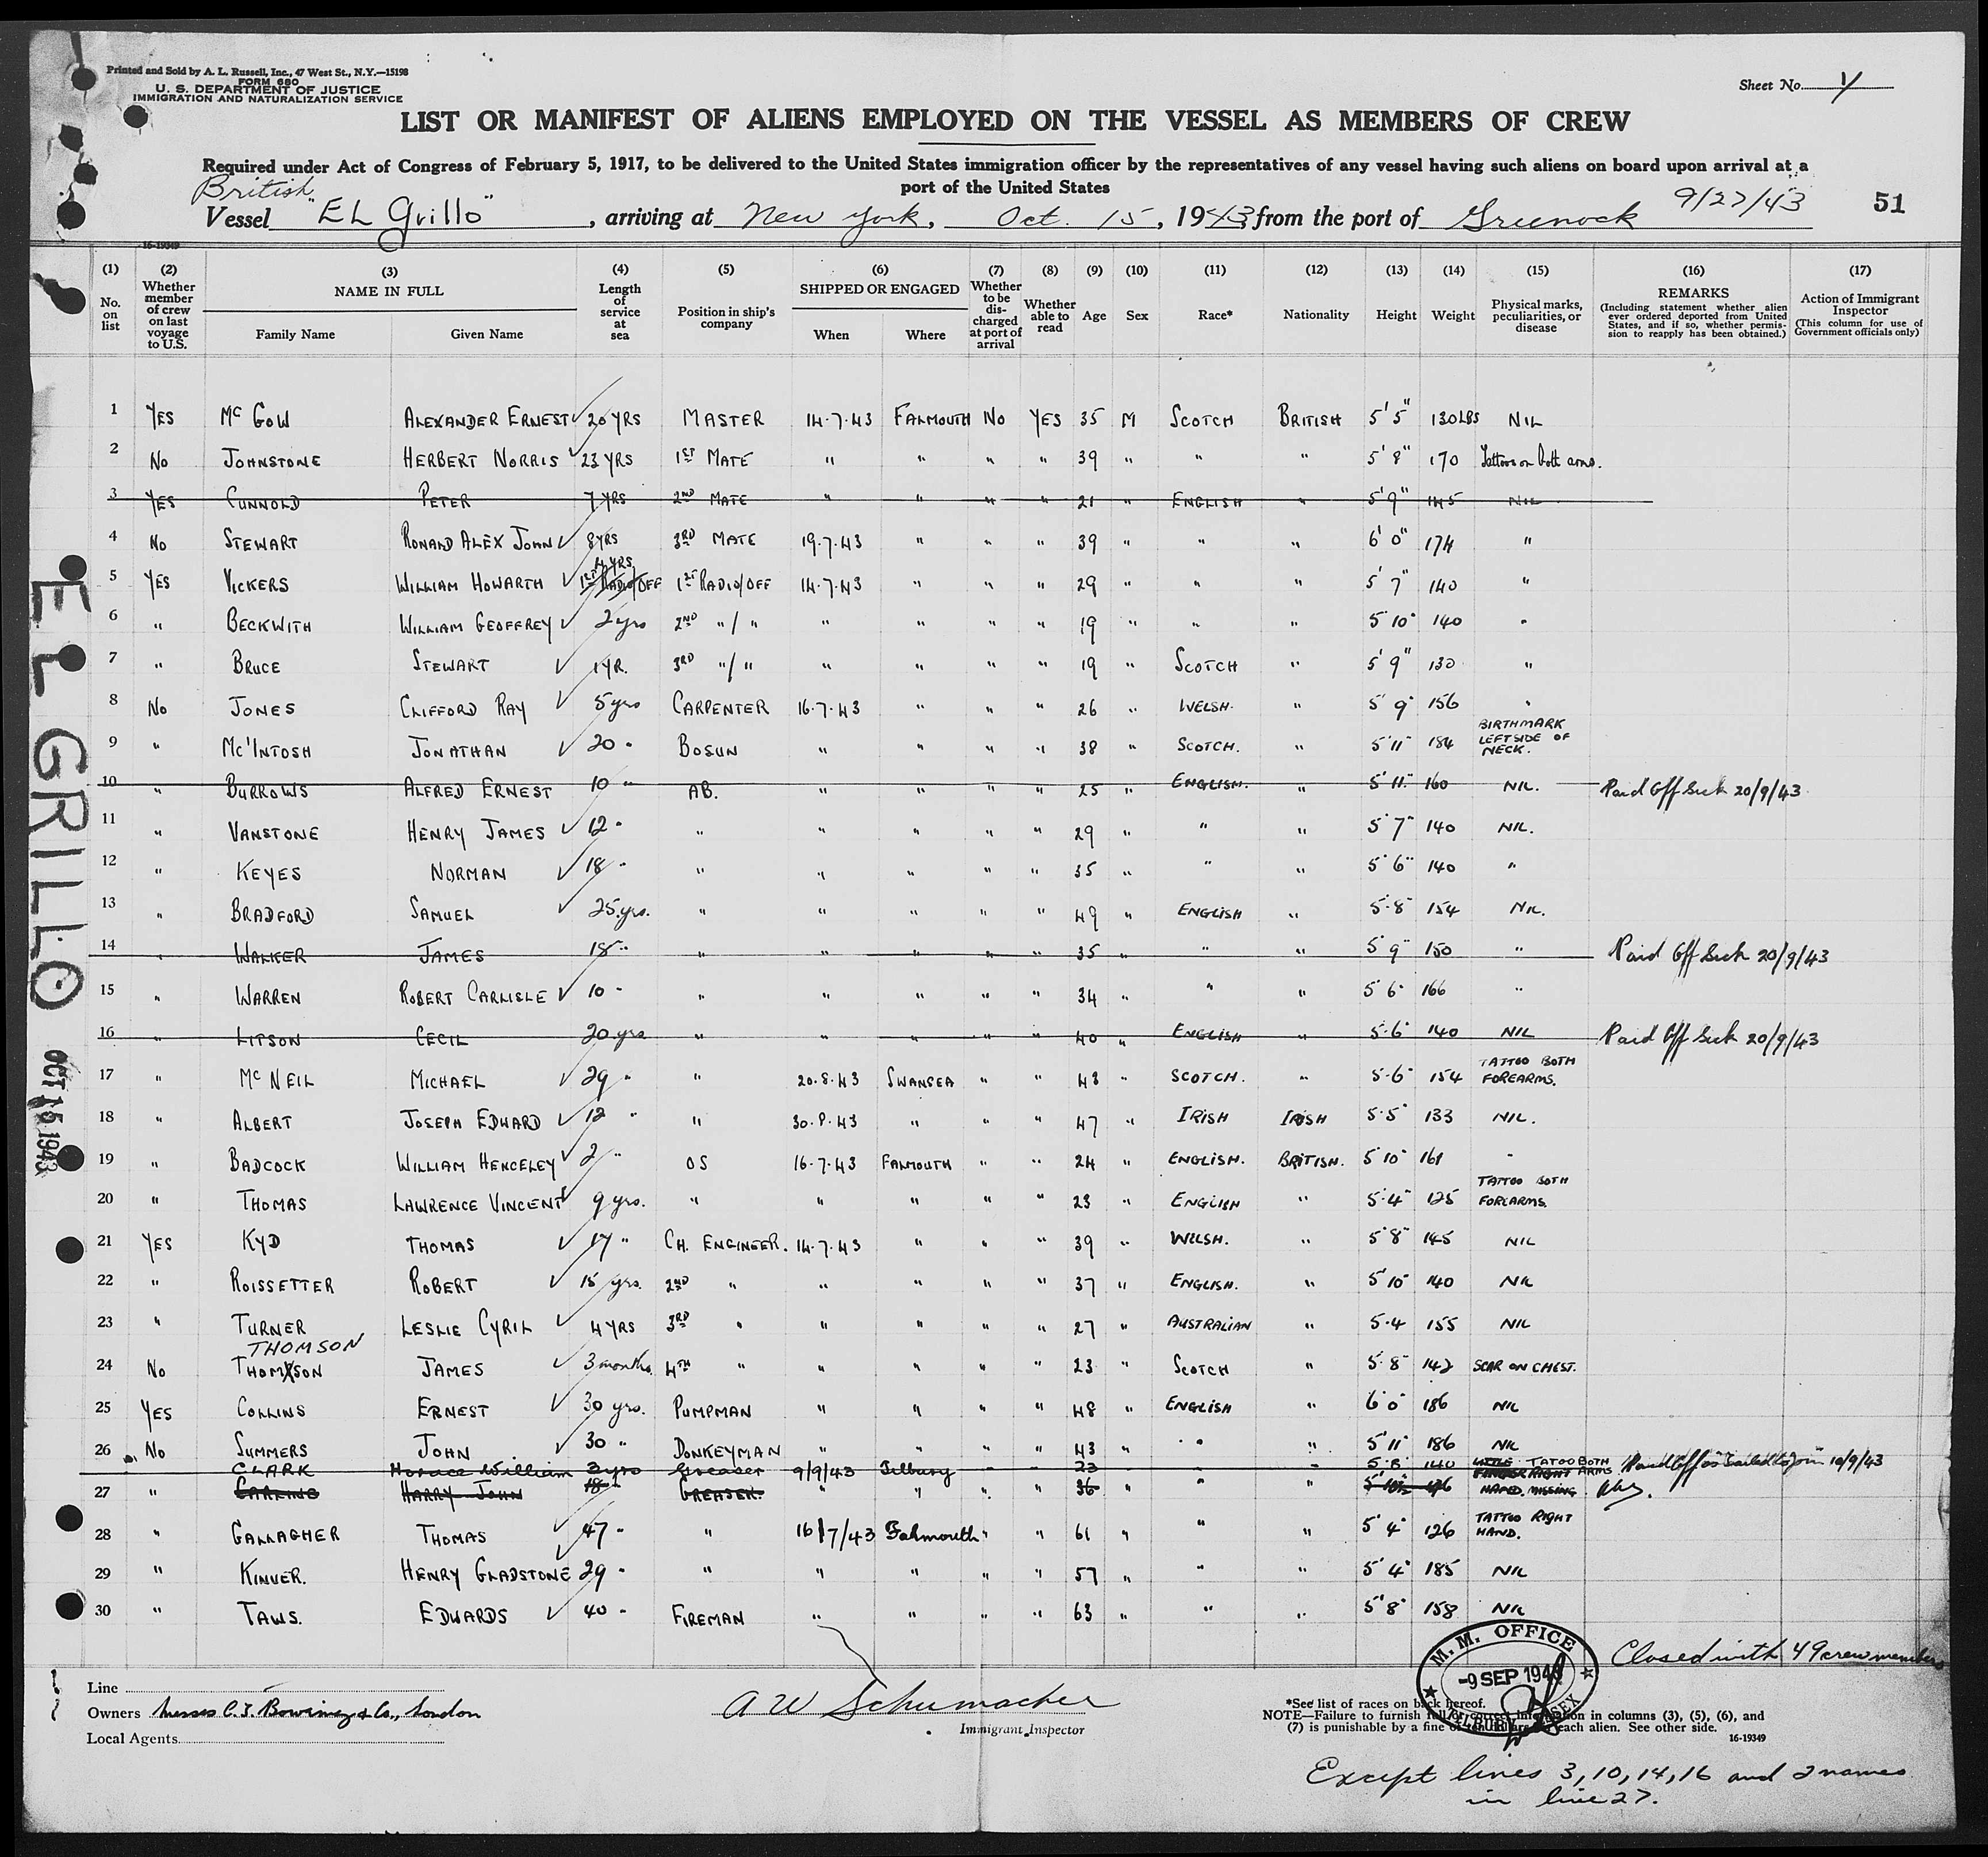 Printed and Sold by A. L. Russell, Inc., 47 West St., N.Y.—15198
FORM 680
U. S. DEPARTMENT OF JUSTICE
IMMIGRATION AND NATURALIZATION SERVICE
Sheet No. 1
LIST OR MANIFEST OF ALIENS EMPLOYED ON THE VESSEL AS MEMBERS OF CREW
Required under Act of Congress of February 5, 1917, to be delivered to the United States immigration officer by the representatives of any vessel having such aliens on board upon arrival at a
port of the United States
British 9/27/43
Vessel "EL Grillo", arriving at New York, Oct. 15, 1943 from the port of Greenock 51
16-19349
(1) No. on list
(2) Whether member of crew on last voyage to U.S.
(3) NAME IN FULL Family Name Given Name
(4) Length of service at sea
(5) Position in ship's company
(6) SHIPPED OR ENGAGED When Where
(7) Whether to be discharged at port of arrival
(8) Whether able to read
(9) Age
(10) Sex
(11) Race*
(12) Nationality
(13) Height
(14) Weight
(15) Physical marks, peculiarities, or disease
(16) REMARKS (Including statement whether alien ever ordered deported from United States, and if so, whether permission to reapply has been obtained.)
(17) Action of Immigrant Inspector (This column for use of Government officials only)
1 YES Mc GOW ALEXANDER ERNEST 20 YRS MASTER 14.7.43 FALMOUTH NO YES 35 M SCOTCH BRITISH 5'5" 130LBS NIL
2 NO JOHNSTONE HERBERT NORRIS 23 YRS 1ST MATE " " " " 39 " " " 5'8" 170 Tattoos on both arms.
3 YES CUNNOLD PETER 7 YRS 2ND MATE " " " " 21 " ENGLISH " 5'9" 145 NIL
4 NO STEWART RONALD ALEX JOHN 8 YRS 3RD MATE 19.7.43 " " " 39 " " " 6'0" 174 "
5 YES VICKERS WILLIAM HOWARTH 4 YRS 1ST RADIO/OFF 1ST RADIO/OFF 14.7.43 " " " 29 " " " 5'7" 140 "
6 " BECKWITH WILLIAM GEOFFREY 2 yrs 2ND "/" " " " " 19 " " " 5'10" 140 "
7 " BRUCE STEWART 1 YR. 3RD "/" " " " " 19 " SCOTCH " 5'9" 130 "
8 NO JONES CLIFFORD RAY 5 yrs CARPENTER 16.7.43 " " " 26 " WELSH. " 5'9" 156 "
9 " Mc'INTOSH JONATHAN 20 " BOSUN " " " " 38 " SCOTCH. " 5'11" 184 BIRTHMARK LEFT SIDE OF NECK.
10 " BURROWS ALFRED ERNEST 10 " AB. " " " " 25 " ENGLISH. " 5'11" 160 NIL. Paid Off Sick 20/9/43
11 " VANSTONE HENRY JAMES 12 " " " " " " 29 " " " 5'7" 140 NIL.
12 " KEYES NORMAN 18 " " " " " " 35 " " " 5'6" 140 "
13 " BRADFORD SAMUEL 25 yrs. " " " " " 49 " ENGLISH " 5'8" 154 NIL.
14 " WALKER JAMES 18 " " " " " " 35 " " " 5'9" 150 " Paid Off Sick 20/9/43
15 " WARREN ROBERT CARLISLE 10 " " " " " " 34 " " " 5'6" 166 "
16 " LITSON CECIL 20 yrs " " " " " 40 " ENGLISH " 5'6" 140 NIL Paid Off Sick 20/9/43
17 " Mc NEIL MICHAEL 29 " " 20.8.43 SWANSEA " " 43 " SCOTCH. " 5'6" 154 TATTOO BOTH FOREARMS.
18 " ALBERT JOSEPH EDWARD 12 " " 30.8.43 " " " 47 " IRISH IRISH 5'5" 133 NIL.
19 " BADCOCK WILLIAM HENCELEY 2 " OS 16.7.43 FALMOUTH " " 24 " ENGLISH. BRITISH. 5'10" 161 "
20 " THOMAS LAWRENCE VINCENT 9 yrs. " " " " " 23 " ENGLISH " 5'4" 125 TATTOO BOTH FOREARMS.
21 YES KYD THOMAS 17 " CH. ENGINEER. 14.7.43 " " " 39 " WELSH. " 5'8" 145 NIL
22 " ROISSETTER ROBERT 15 yrs. 2ND " " " " " 37 " ENGLISH. " 5'10" 140 NIL
23 " TURNER LESLIE CYRIL 4 YRS 3RD " " " " " 27 " AUSTRALIAN " 5'4 155 NIL
THOMSON
24 NO THOMSON JAMES 3 months. 4TH " " " " " 23 " SCOTCH " 5'8" 142 SCAR ON CHEST.
25 YES COLLINS ERNEST 30 yrs. PUMPMAN " " " " 48 " ENGLISH " 6'0" 186 NIL
26 NO SUMMERS JOHN 30 " DONKEYMAN " " " " 43 " " " 5'11" 186 NIL
CLARK Horace William 3 yrs Greaser 9/9/43 Tilbury " " 23 " " " 5'8" 140 TATOO BOTH ARMS Paid Off as Failed to Join 10/9/43
27 " HARRY JOHN 18 GREASER. " " " " 36 " " LITTLE FINGER RIGHT HAND. MISSING.
28 " GALLAGHER THOMAS 47 " " 16/7/43 Falmouth " " 61 " " " 5'4" 126 TATTOO RIGHT HAND.
29 " KINVER. HENRY GLADSTONE 29 " " " " " " 57 " " " 5'4" 185 NIL
30 " TAWS. EDWARDS 40 " FIREMAN " " " " 63 " " " 5'8" 158 NIL
EL GRILLO
OCT 15 1943
Closed with 49 crew members
M. M. OFFICE
-9 SEP 1943
TILBURY ESSEX
Line
Owners Messrs C.T. Bowring & Co., London
Local Agents
A W Schumacher
Immigrant Inspector
*See list of races on back hereof.
NOTE—Failure to furnish full or correct information in columns (3), (5), (6), and
(7) is punishable by a fine of ten dollars for each alien. See other side.
16-19349
Except lines 3, 10, 14, 16 and 2 names
in line 27.